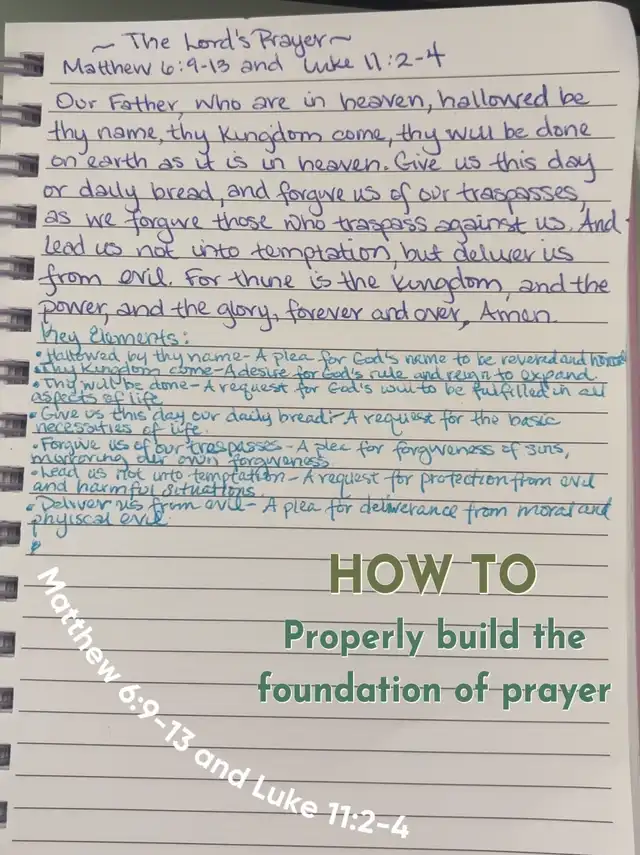 ~ The Lord's Prayer ~
Matthew 6:9-13 and Luke 11:2-4
Our Father, who are in heaven, hallowed be
thy name, thy Kingdom come, thy will be done
on earth as it is in heaven. Give us this day
or daily bread, and forgive us of our traspasses,
as we forgive those who traspass against us. And
lead us not into temptation, but deliver us
from evil. For thine is the kingdom, and the
power, and the glory, forever and over, Amen.
Key Elements:
• Hallowed by thy name - A plea for God's name to be revered and honored
• Thy Kingdom come - A desire for God's rule and reign to expand.
• Thy will be done - A request for God's will to be fulfilled in all
aspects of life.
• Give us this day our daily bread: - A request for the basic
necessities of life.
• Forgive us of our traspasses - A plea for forgiveness of sins,
mirroring our own forgiveness
• Lead us not unto temptation - A request for protection from evil
and harmful situations.
• Deliver us from evil - A plea for deliverance from moral and
phyiscal evil.
HOW TO
Properly build the
foundation of prayer
Matthew 6:9-13 and Luke 11:2-4